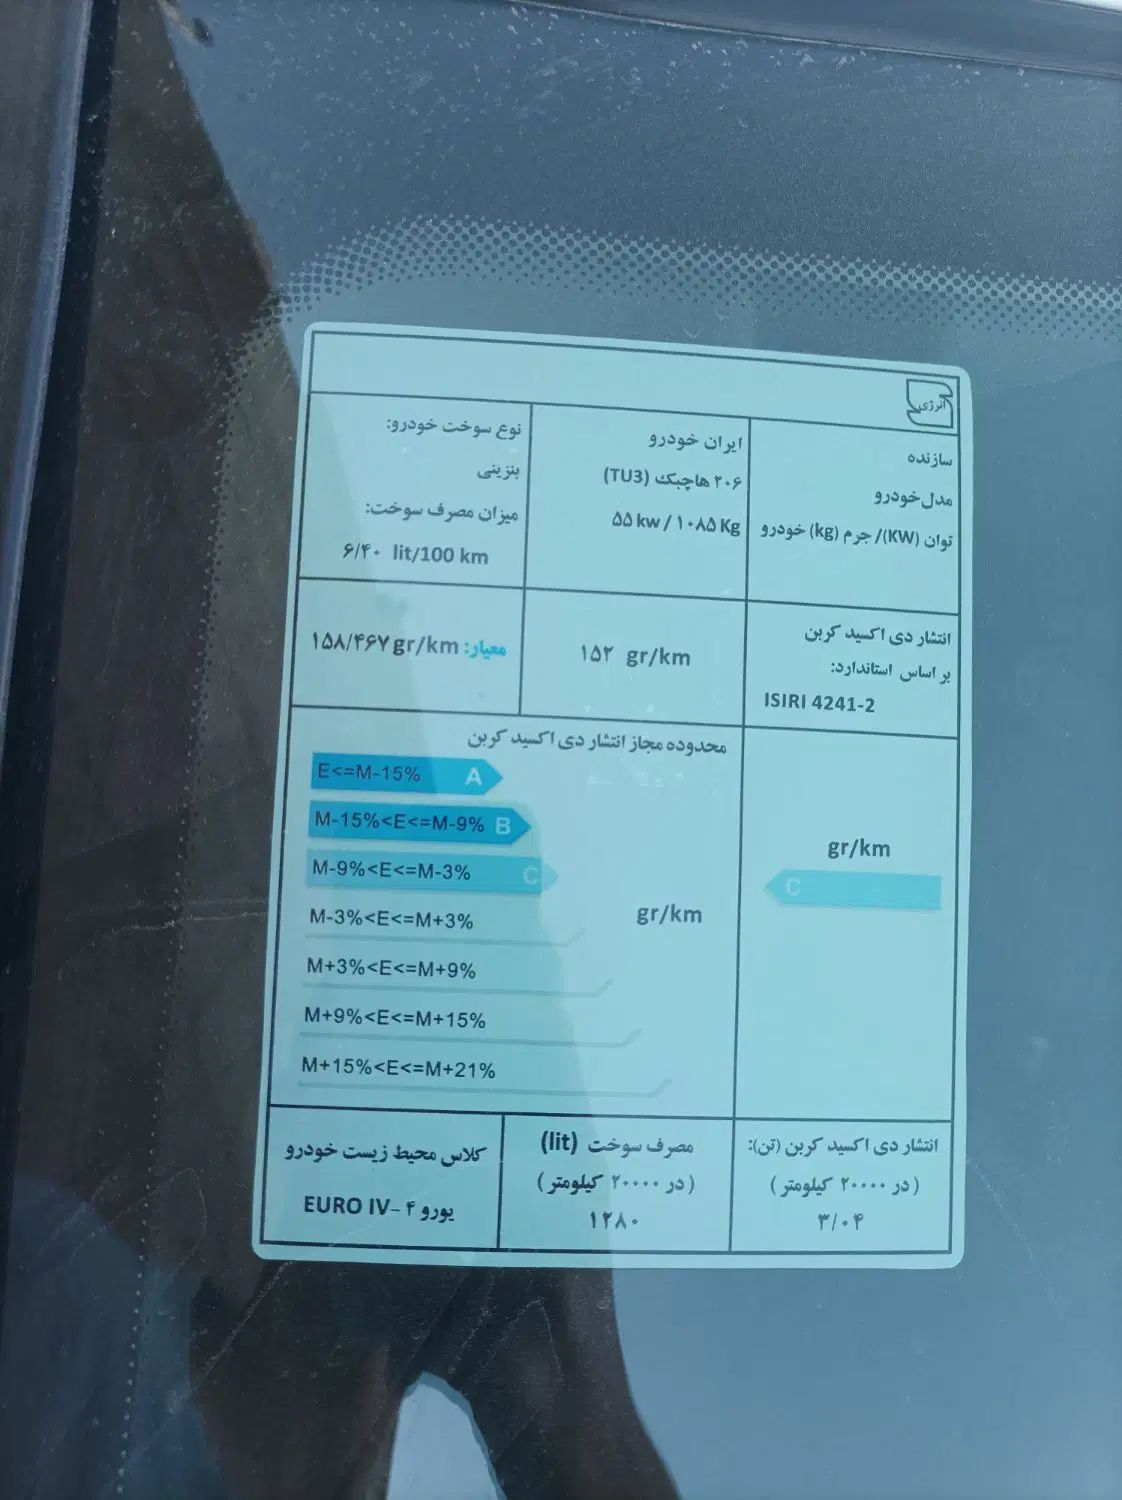 انرژی
سازنده
مدل خودرو
توان (KW)/ جرم (kg) خودرو
ایران خودرو
۲۰۶ هاچبک (TU3)
۵۵ kw / ۱۰۸۵ Kg
نوع سوخت خودرو:
بنزینی
میزان مصرف سوخت:
۶/۴۰ lit/100 km
انتشار دی اکسید کربن
بر اساس استاندارد:
ISIRI 4241-2
۱۵۲ gr/km
معیار: ۱۵۸/۴۶۷ gr/km
محدوده مجاز انتشار دی اکسید کربن
E<=M-15% A
M-15%<E<=M-9% B
M-9%<E<=M-3% C
M-3%<E<=M+3%
M+3%<E<=M+9%
M+9%<E<=M+15%
M+15%<E<=M+21%
gr/km
gr/km
C
انتشار دی اکسید کربن (تن):
(در ۲۰۰۰۰ کیلومتر)
۳/۰۴
مصرف سوخت (lit)
(در ۲۰۰۰۰ کیلومتر)
۱۲۸۰
کلاس محیط زیست خودرو
یورو ۴ –EURO IV